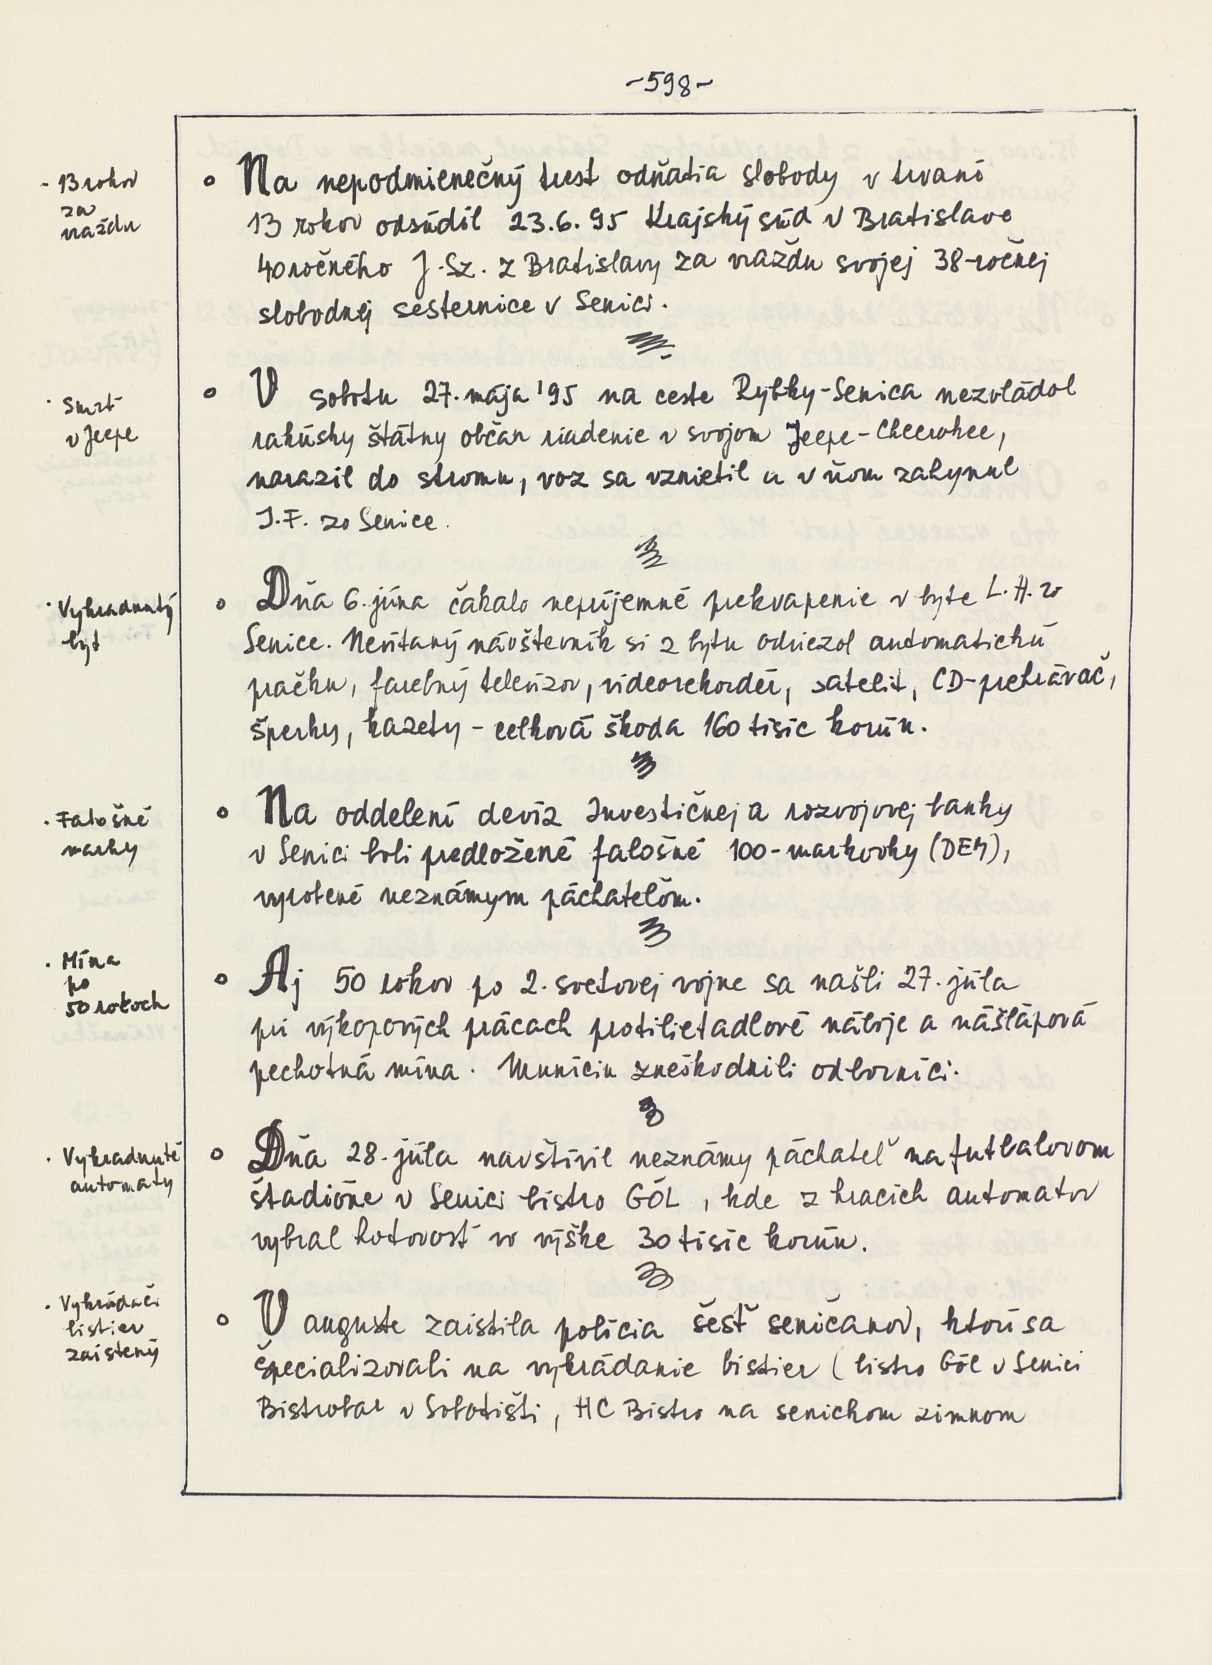 -598-
- 13 rokov
za
vraždu
o Na nepodmienečný trest odňatia slobody v trvaní
13 rokov odsúdil 23.6.95 Krajský súd v Bratislave
40ročného J.Sz. z Bratislavy za vraždu svojej 38-ročnej
slobodnej sesternice v Senici.
· Smrť
v Jeepe
o V sobotu 27. mája '95 na ceste Rybky-Senica nezvládol
rakúsky štátny občan riadenie v svojom Jeepe-Cheerokee,
narazil do stromu, voz sa vznietil a v ňom zahynul
J.F. zo Senice.
· Vykradnutý
byt
o Dňa 6. júna čakalo nepríjemné prekvapenie v byte L.H. zo
Senice. Nevítaný návštevník si z bytu odviezol automatickú
pračku, farebný televízor, videorekordér, satelit, CD-prehrávač,
šperky, kazety - celková škoda 160 tisíc korún.
· Falošné
marky
o Na oddelení devíz Investičnej a rozvojovej banky
v Senici boli predložené falošné 100-markovky (DEM),
vyrobené neznámym páchateľom.
· Mína
po
50 rokoch
o Aj 50 rokov po 2. svetovej vojne sa našli 27. júla
pri výkopových prácach protilietadlové náboje a nášlapová
pechotná mína. Muníciu zneškodnili odborníci.
· Vykradnuté
automaty
o Dňa 28. júla navštívil neznámy páchateľ na futbalovom
štadióne v Senici bistro GÓL, kde z hracích automatov
vybral hotovosť vo výške 30 tisíc korún.
· Vykrádači
bistier
zaistený
o V auguste zaistila polícia šesť seničanov, ktorí sa
špecializovali na vykrádanie bistier (bistro Gól v Senici
Bistrobar v Sobotišti, HC Bistro na senickom zimnom